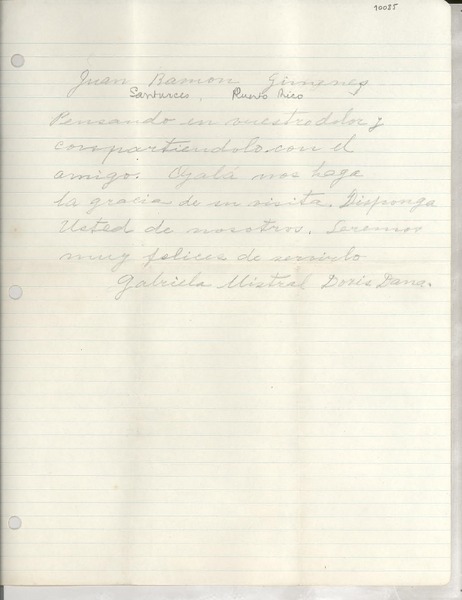 10085
Juan Ramon Gimenez
Santurces, Puerto Rico
Pensando en vuestro dolor y
compartiendolo con el
amigo. Ojalá nos haga
la gracia de su visita. Disponga
Usted de nosotros. Seremos
muy felices de servirlo
Gabriela Mistral Doris Dana.